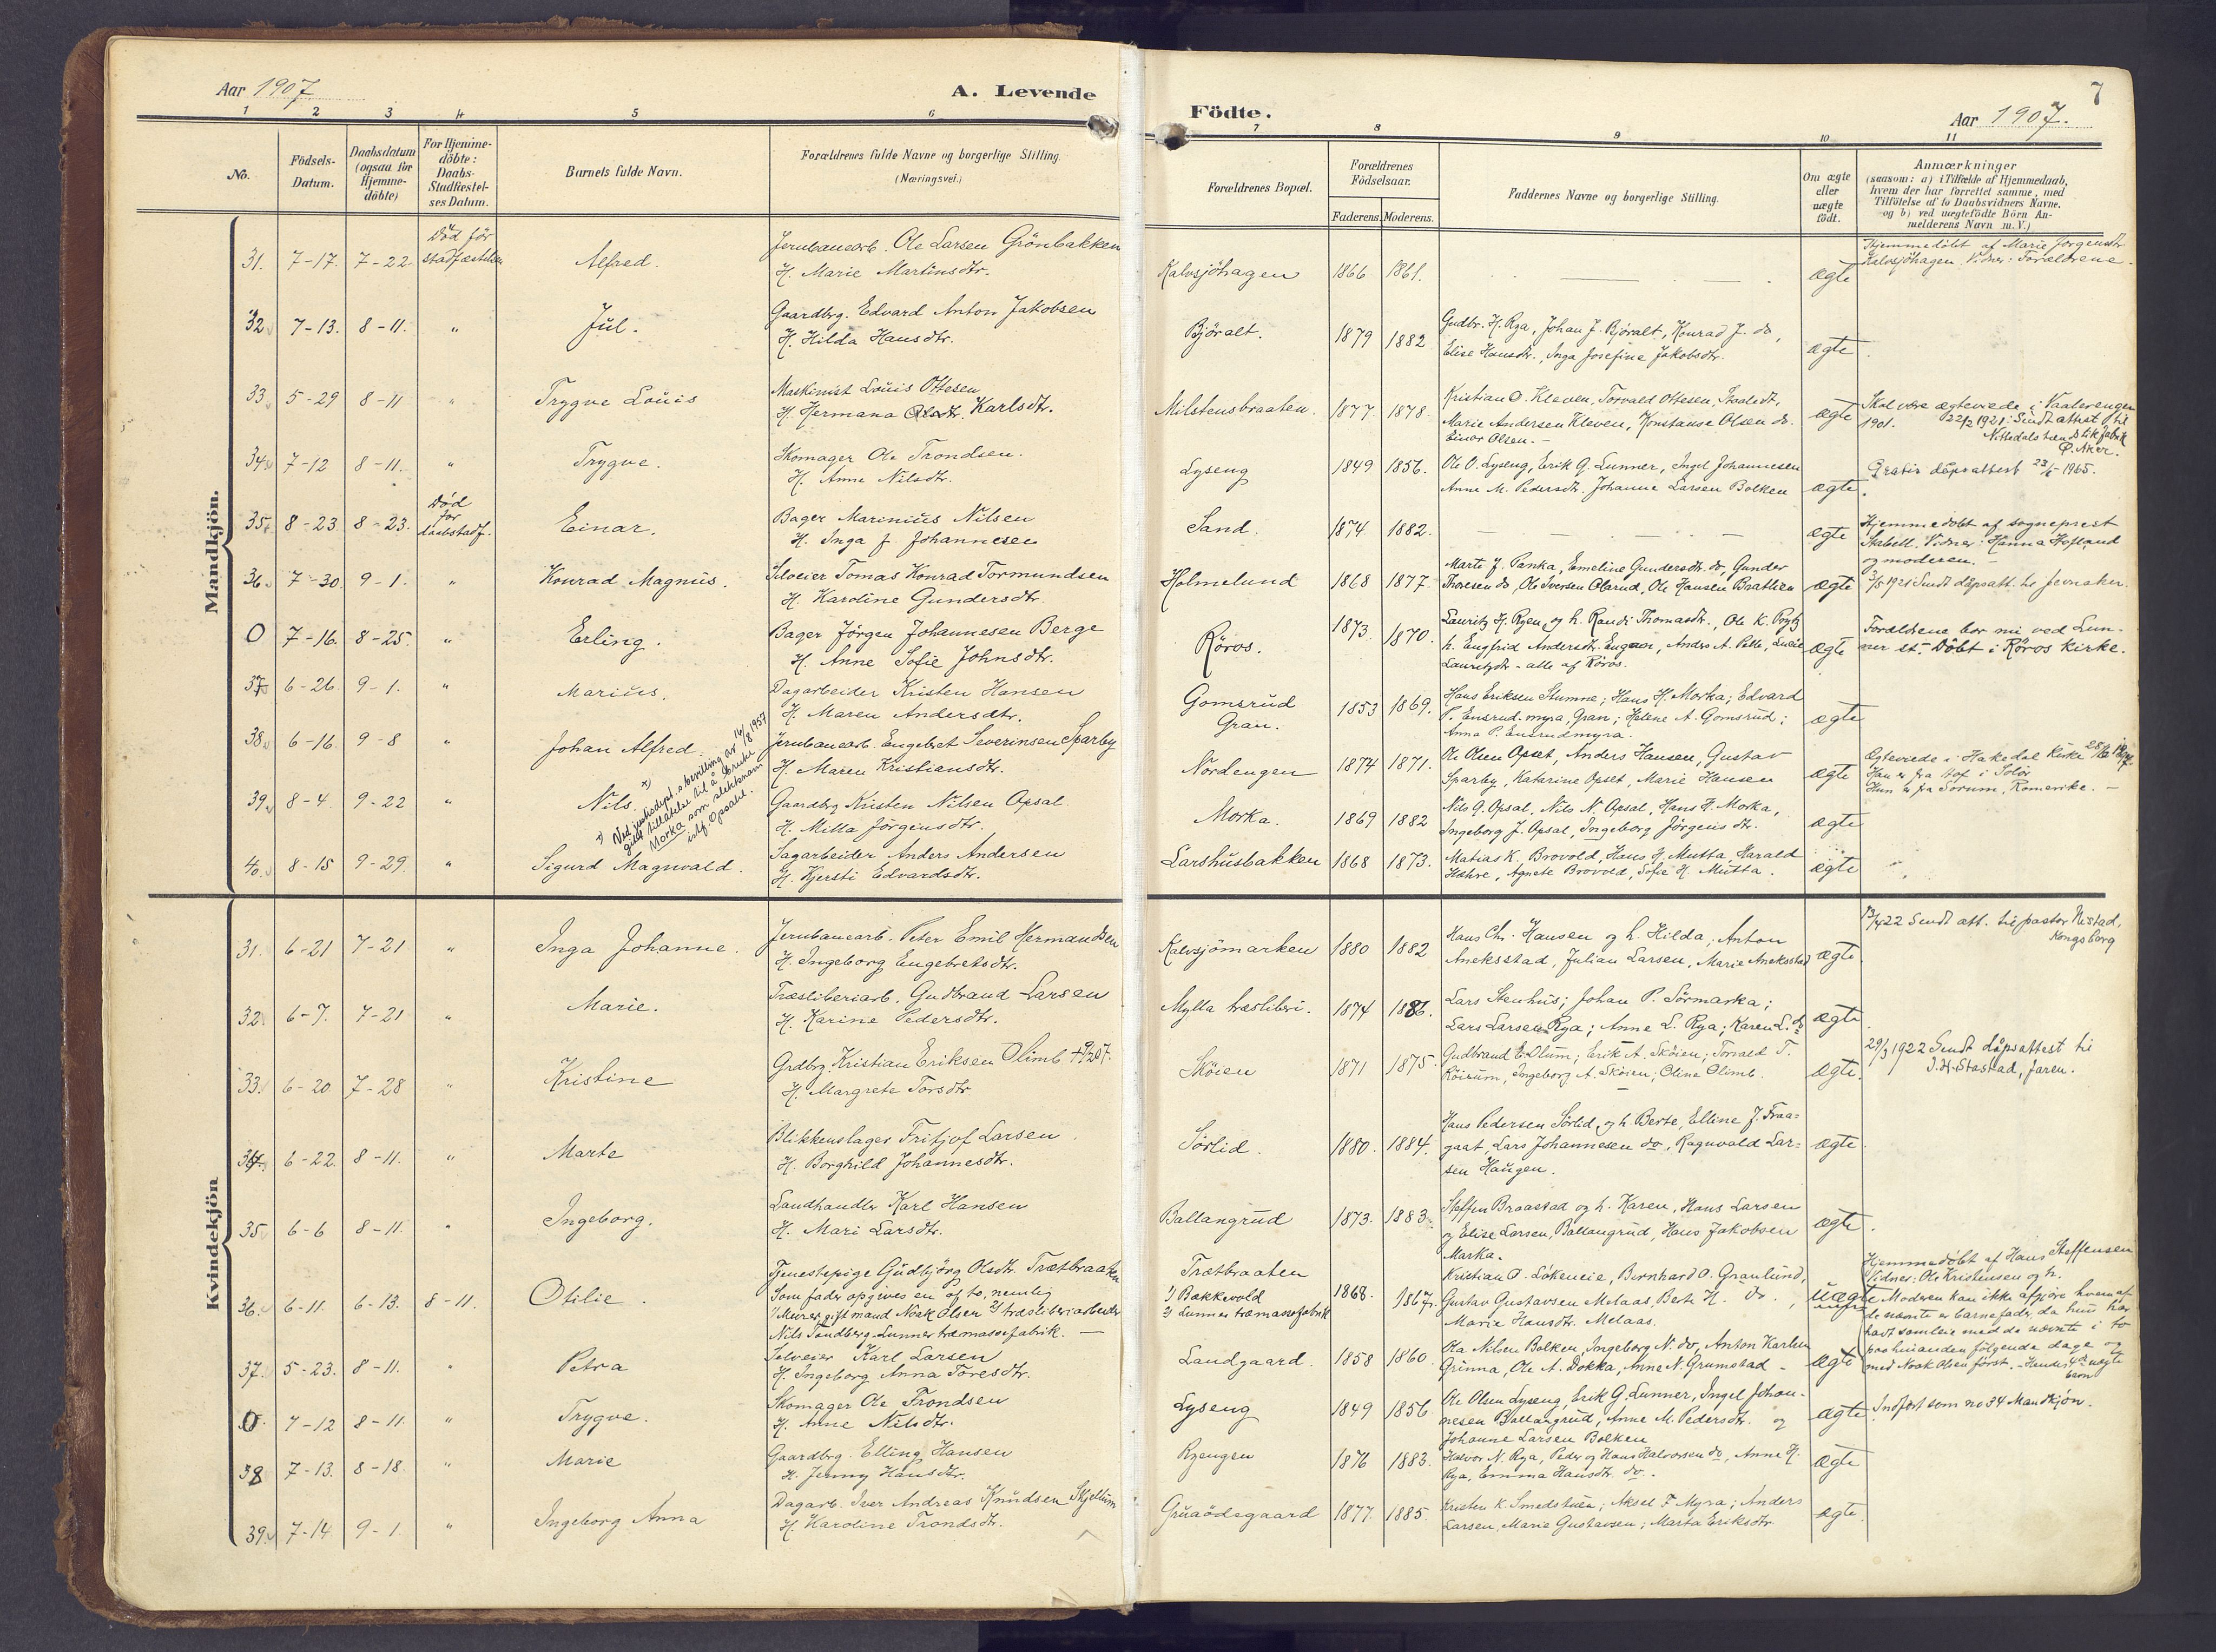 Aar 1907
A. Levende
1 2 3 4 5 6
No.
Födsels-
Datum.
Daabsdatum
(ogsaa for
Hjemme-
döbte)
For Hjemme-
döbte:
Daabs-
Stadfæstel-
ses Datum.
Barnets fulde Navn.
Forældrenes fulde Navne og borgerlige Stilling.
(Næringsvei.)
Mandkjön.
Död för
31. 7-17. 7-22 stadfæstelsen Alfred. Jernbanearb. Ole Larsen Grönbakken
H. Marie Martinsdtr.
32 7-13. 8-11. " Jul. Gaardbrg. Edvard Anton Jakobsen
H. Hilda Hansdtr.
33 5-29 8-11 " Trygve Louis Maskinist Louis Ottesen
H. Hermana Karlsdtr.
34 7-12 8-11. " Trygve. Skomager Ole Trondsen.
H. Anne Nilsdtr.
Död
for
35 8-23 8-23. daabstadf. Einar. Bager Marinius Nilsen
H. Inga J. Johannesen
36 7-30 9-1. " Konrad Magnus. Selveier Tomas Konrad Tormundsen
H. Karoline Gundersdtr.
0 7-16. 8-25. " Erling. Bager Jörgen Johannesen Berge
H. Anne Sofie Johnsdtr.
37 6-26. 9-1. " Marius. Dagarbeider Kristen Hansen
H. Maren Andersdtr.
38 6-16 9-8 " Johan Alfred. Jernbanearb. Engebret Severinsen Sparby
H. Maren Kristiansdtr.
39 8-4. 9-22 " Nils. x) Gaardbrg Kristen Nilsen Opsal.
H. Milla Jörgensdtr.
x) Ved justisdept.s bevilling av 16/8 1957
gitt tillatelse til å bruke
Morka som slektsnam
istf. Opsahl.
40. 8-15 9-29. " Sigurd Magnvald. Sagarbeider Anders Andersen
H. Kjersti Edvardsdtr.
Kvindekjön
31. 6-21 7-21 " Inga Johanne. Jernbanearb. Peter Emil Hermandsen
H. Ingeborg Engebretsdtr.
32 6-7. 7-21 " Marie. Træsliberiarb. Gudbrand Larsen
H. Karine Pedersdtr.
33. 6-20 7-28 " Kristine Grdbrg. Kristian Eriksen Olimb
H. Margrete Torsdtr.
34. 6-22. 8-11. " Marte Blikkenslager Fritjof Larsen.
H. Borghild Johannesdtr.
35 6-6 8-11. " Ingeborg. Landhandler Karl Hansen
H. Mari Larsdtr.
36. 6-11. 6-13. 8-11. Otilie. Tjenestepige Gudbjörg Olsdtr. Trætbraaten
Som fader opgives en af to, nemlig
1) Murer, gift mand Noak Olsen 2) træsliberiarbeider
Nils Tandberg. Lunner træmassefabrik. —
37. 5-23. 8-11. " Petra Selveier Karl Larsen
H. Ingeborg Anna Toresdtr.
0. 7-12 8-11. " Trygve. Skomager Ole Trondsen
H. Anne Nilsdtr.
38 7-13. 8-18. " Marie Gaardbrg. Elling Hansen
H. Jenny Hansdtr.
39. 7-14. 9-1. " Ingeborg Anna Dagarb. Iver Andreas Knudsen Skjellum
H. Karoline Trondsdtr.
7
Födte.
Aar 1907.
7 8 9 10 11
Forældrenes Bopæl.
Forældrenes
Födselsaar.
Faderens. Moderens.
Faddernes Navne og borgerlige Stilling.
Om ægte
eller
uægte
födt.
Anmærkninger
(saasom: a) i Tilfælde af Hjemmedaab,
hvem der har forrettet samme, med
Tilföielse af to Daabsvidners Navne,
og b) ved uægtefödte Börn An-
melderens Navn m. V.)
Kalvsjöhagen 1866 1861. — ægte Hjemmedöbt af Marie Jörgensdtr.
Kalvsjöhagen. Vidner: Forældrene.
Björalt. 1879 1882 Gudbr. H. Rya, Johan J. Björalt, Konrad J. do,
Elise Hansdtr., Inga Josefine Jakobsdtr. ægte.
Milstensbraaten. 1877. 1878. Kristian O. Kleven, Torvald Ottesen,
Marie Andersen Kleven, Konstanse Olsen do.
Einar Olsen. - ægte Skal være ægteviede i Vaalerengen
1901. 22/2 1921: Sendt attest til
Nittedals tændstikfabrik
Ø. Aker.
Lyseng 1849 1856. Ole O. Lyseng, Erik G. Lunner, Ingel Johannesen
Anne M. Pedersdtr. Johanne Larsen Bolken ægte. Gratis dåpsattest 23/ 1965.
Sand. 1874. 1882. — ægte Hjemmedöbt af sogneprest
Stabell. Vidner: Hanna Hofland
og moderen. -
Holmelund 1868 1877. Marte J. Panka, Emeline Gundersdtr. do, Gunder
Thoresen do, Ole Iversen Olerud, Ole Hansen Braathen ægte 1921 Sendt dåpsatt. til Jevnaker.
Röros. 1873. 1870. Lauritz H. Ryen og h. Randi Thomasdtr., Ole K. Prytz
h. Engfrid Andersdtr. Engaen, Anders A. Pelle, Lucie
Lauritzdtr - alle af Röros. ægte Forældrene bor nu ved Lun-
ner st. Döbt i Röros kirke.
Gomsrud
Gran. 1853 1869. Hans Eriksen Stumne; Hans H. Morka; Edvard
P. Ensrud-myra, Gran; Helene A. Gomsrud;
Anna P. Ensrudmyra. ægte
Nordengen 1874 1871. Ole Olsen Opset, Anders Hansen, Gustav
Sparby, Katarine Opset, Marie Hansen ægte Ægteviede i Hakedal Kirke
Han er fra Hof i Solör
Hun er fra Sörum, Romerike. -
Morka. 1869 1882 Nils G. Opsal, Nils N. Opsal, Hans H. Morka,
Ingeborg J. Opsal, Ingeborg Jörgensdtr. ægte
Larshusbakken 1868 1873. Matias K. Brovold, Hans H. Mutta, Harald
Hæhre, Agnete Brovold, Sofie H. Mutta. ægte
Kalvsjömarken 1880 1882 Hans Chr. Hansen og h. Hilda, Anton
Aneksstad, Julian Larsen, Marie Aneksstad ægte. 13/4 22 Sendt att. til pastor Nistad,
Kongsberg
Mylla træsliberi. 1874 1886. Lars Stenhus; Johan P. Sörmarka;
Lars Larsen Rya; Anne L. Rya; Karen L. do ægte.
Sköien 1871 1875. Gudbrand E. Olum; Erik A. Sköien; Torvald T.
Röisum, Ingeborg A. Sköien; Oline Olimb. ægte. 29/3 1922 Sendt dåpsattest til
J. H. Stastad, Jaren.
Sörlid. 1880. 1884. Hans Pedersen Sörlid og h. Berte, Elline J. Fraa-
gaat, Lars Johannesen do, Ragnvald Lar-
sen Haugen. ægte
Ballangrud 1873. 1883. Steffen Braastad og h. Karen, Hans Larsen
og Elise Larsen, Ballangrud, Hans Jakobsen
Marka. ægte.
Trætbraaten
1) Bækkevold
2) Lunner træmassefabrik 1868. 1867. Kristian O. Lökeneie, Bernhard O. Granlund,
Gustav Gustavsen Melaas, Berte H. do.,
Marie Hansdtr. Melaas. uægte Hjemmedöbt af Hans Steffensen
Vidner: Ole Kristensen og h.
Moderen kan ikke afgjöre hvem af
de nævnte er barnefader, da hun har
havt samleie med de nævnte i to
paa hinanden fölgende dage og
med Noak Olsen först. - Hendes 4de uægte
barn
Landgaard. 1858 1860. Ola Nilsen Bolken, Ingeborg N. do, Anton Karlsen
Grinna, Ole A. Dokka, Anne N. Grumstad - ægte
Lyseng 1849 1856. Ole Olsen Lyseng, Erik G. Lunner, Ingel Johan-
nesen Ballangrud, Anne M. Pedersdtr. og
Johanne Larsen Bolken ægte. Indfört som no 34 Mandkjön.
Ryengen 1876 1883. Halvor N. Rya, Peder og Hans Halvorsen do, Anne H.
Rya, Emma Hansdtr. do. ægte
Gruaödegaard 1877. 1885. Kristen K. Smedstuen; Aksel F. Myra; Anders
Larsen, Marie Gustavsen; Marta Eriksdtr. ægte.